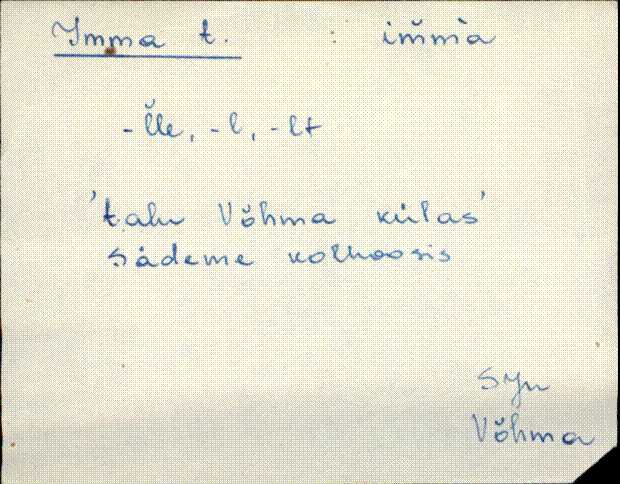 Imma t. : im̆mà
-l̆le, -l, -lt
'talu Võhma külas'
Sädeme kolhoosis
SJn
Võhma